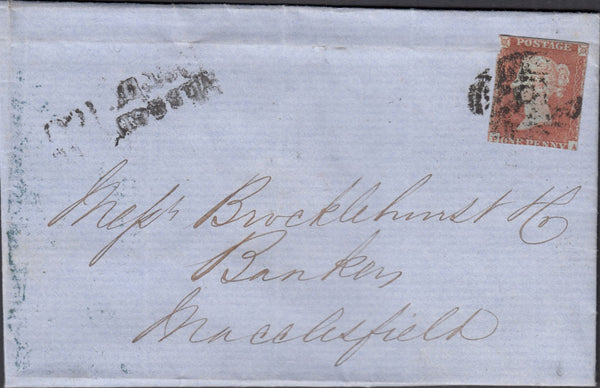 POSTAGE
ONE PENNY
Messrs Brocklehurst & Co
Bankers
Macclesfield